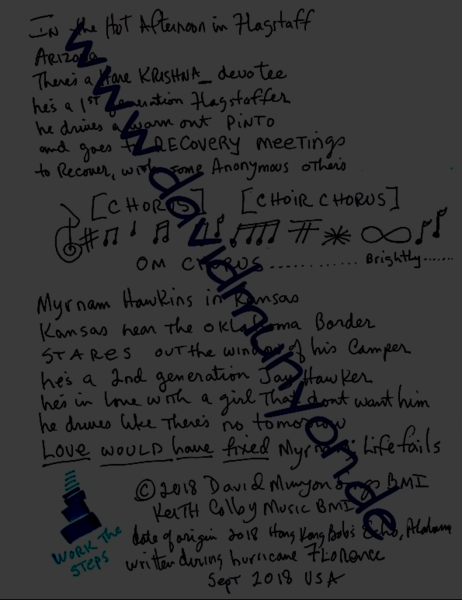 In the Hot Afternoon in Flagstaff
Arizona
There's a Hare KRISHNA_ devotee
he's a 1ST generation Flagstaffer
he drives a worn out PINTO
and goes to RECOVERY MEETINGS
to Recover, with some Anonymous others
[CHORUS] [CHOIR CHORUS]
OM CHORUS............ Brightly.......
Myrnam Hawkins in Kansas
Kansas near the Oklahoma Border
STARES out the window of his Camper
he's a 2nd generation Jay Hawker
he's in love with a girl That dont want him
he drives like There's no tomorrow
LOVE WOULD have fixed Myrnam Life fails
© 2018 David Munyon Songs BMI
Keith Colby Music BMI
date of origin 2018 Hong Kong Bob's Echo, Alabama
written during hurricane Florence
Sept 2018 USA
WORK THE
STEPS
www.davidmunyon.de